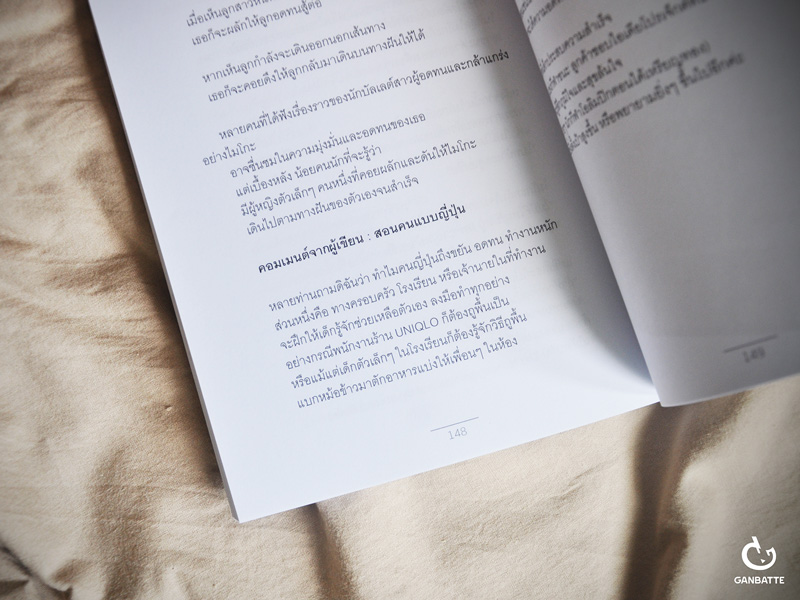 เมื่อเห็นลูกสาว
เธอก็จะผลักให้ลูกอดทนสู้ต่อ
หากเห็นลูกกำลังจะเดินออกนอกเส้นทาง
เธอก็จะคอยดึงให้ลูกกลับมาเดินบนทางฝันให้ได้
หลายคนที่ได้ฟังเรื่องราวของนักบัลเลต์สาวผู้อดทนและกล้าแกร่ง
อย่างไมโกะ
อาจชื่นชมในความมุ่งมั่นและอดทนของเธอ
แต่เบื้องหลัง น้อยคนนักที่จะรู้ว่า
มีผู้หญิงตัวเล็กๆ คนหนึ่งที่คอยผลักและดันให้ไมโกะ
เดินไปตามทางฝันของตัวเองจนสำเร็จ
คอมเมนต์จากผู้เขียน : สอนคนแบบญี่ปุ่น
หลายท่านถามดิฉันว่า ทำไมคนญี่ปุ่นถึงขยัน อดทน ทำงานหนัก
ส่วนหนึ่งคือ ทางครอบครัว โรงเรียน หรือเจ้านายในที่ทำงาน
จะฝึกให้เด็กรู้จักช่วยเหลือตัวเอง ลงมือทำทุกอย่าง
อย่างกรณีพนักงานร้าน UNIQLO ก็ต้องถูพื้นเป็น
หรือแม้แต่เด็กตัวเล็กๆ ในโรงเรียนก็ต้องรู้จักวิธีถูพื้น
แบกหม้อข้าวมาตักอาหารแบ่งให้เพื่อนๆ ในห้อง
148
ประสบความสำเร็จ
149
GANBATTE